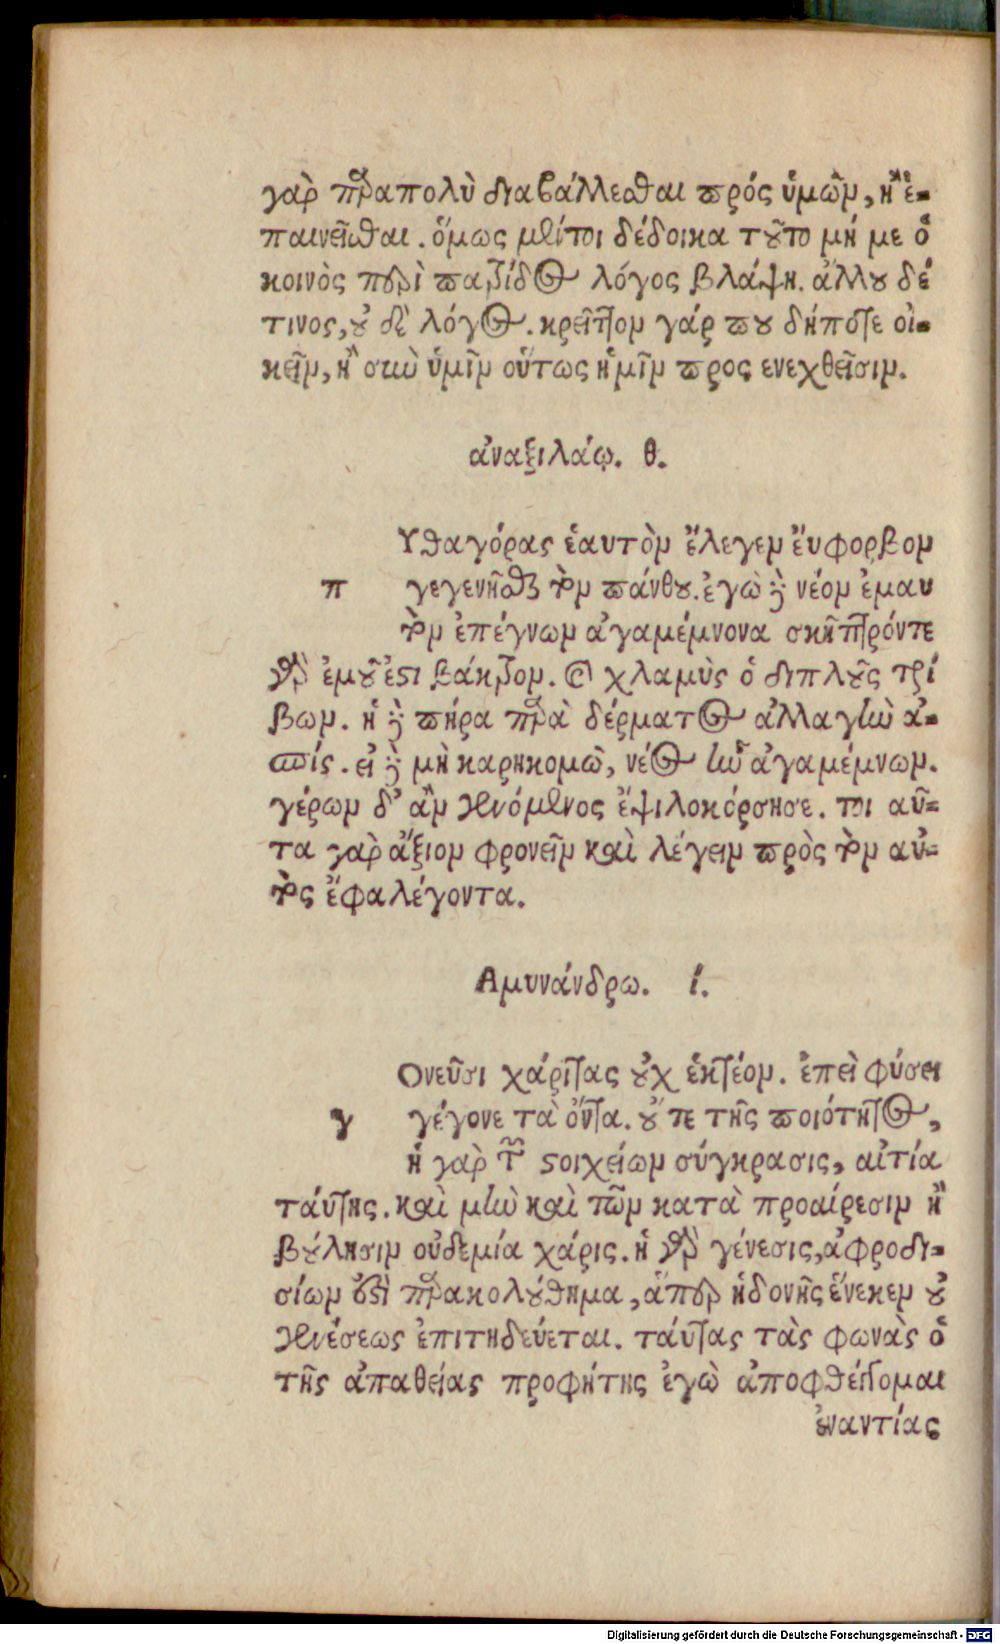 γὰρ παραπολὺ διαβάλλεσθαι πρός ὑμῶν, ἢ ἐ-
παινεῖσθαι. ὅμως μέντοι δέδοικα τοῦτο μή με ὁ
κοινὸς περὶ πατρίδος λόγος βλάψῃ. ἄλλου δέ
τινος, οὐ δὲ λόγος. κρεῖττον γάρ που δήποτε οἰ-
κεῖν, ἢ σὺν ὑμῖν οὕτως ἡμῖν προς ενεχθεῖσιν.
ἀναξιλάῳ. θ.
Υθαγόρας ἑαυτὸν ἔλεγεν ἔυφορβον
π γεγενῆσθαι τὸν πάνθου. ἐγὼ δὲ νέον ἐμαυ
τὸν ἐπέγνων ἀγαμέμνονα σκῆπτρόντε
γὰρ ἐμοῦ ἐστι βάκτρον. καὶ χλαμὺς ὁ διπλοῦς τρί
βων. ἡ δὲ πήρα παρὰ δέρματος ἀλλαγὴν ἀ-
σπίς. εἰ δὲ μὴ καρηκομῶ, νέος ἦν ἀγαμέμνων.
γέρων δ' ἂν γινόμενος ἐψιλοκόρσησε. τοι αῦ-
τα γὰρ ἄξιον φρονεῖν καὶ λέγειν πρὸς τὸν αὐ-
τὸς ἔφα λέγοντα.
Αμυνάνδρω. ί.
Ονεῦσι χάριτας οὐχ ἑκτέον. ἐπεὶ φύσει
γ γέγονε τὰ ὄντα. οὔτε τῆς ποιότητος,
ἡ γὰρ τῶν στοιχείων σύγκρασις, αἰτία
ταύτης. καὶ μὴν καὶ τῶν κατὰ προαίρεσιν ἢ
βούλησιν οὐδεμία χάρις. ἡ γὰρ γένεσις, ἀφροδι-
σίων ἐστὶ παρακολούθημα, ἅπερ ἡδονῆς ἕνεκεν οὐ
γενέσεως ἐπιτηδεύεται. ταύτας τὰς φωνὰς ὁ
τῆς ἀπαθείας προφήτης ἐγὼ ἀποφθέγγομαι
ἐναντίας
Digitalisierung gefördert durch die Deutsche Forschungsgemeinschaft - DFG